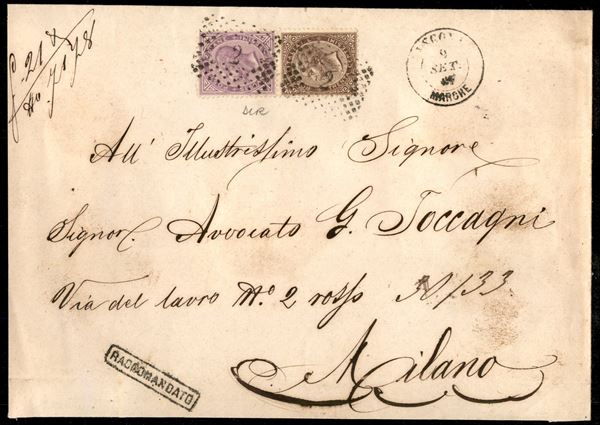 f. 21 8
No. 7178
2
DLR
ASCOLI
9
SET.
67
MARCHE
All' Illustrissimo Signore
Signor. Avvocato G. Toccagni
Via del lauro No. 2 rosso N 133
Milano
RACCOMANDATO